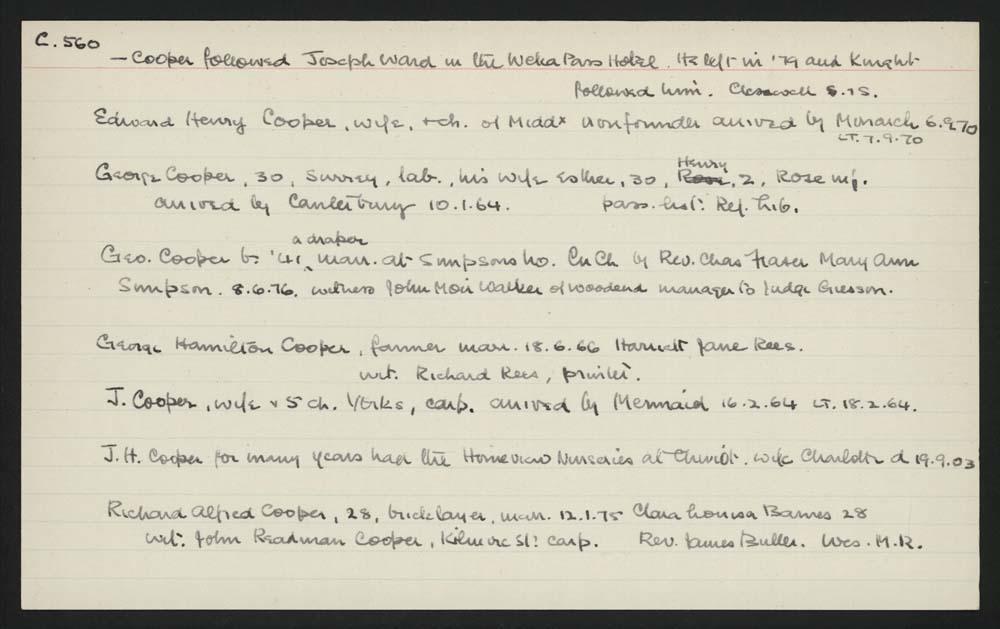 C. 560
— Cooper followed Joseph Ward in the Weka Pass Hotel. He left in '79 and Knight
followed him. Cresswell 5.75.
Edward Henry Cooper, wife, + ch. of Middx ironfounder arrived by Monarch 6.9.70
LT. 7.9.70
Henry
George Cooper, 30, Surrey, lab., his wife Esther, 30, Rose, 2, Rose inf.
arrived by Canterbury 10.1.64. pass. list: Ref. Lib.
a draper
Geo. Cooper b: '41, marr. at Simpsons ho. ChCh by Rev. Chas Fraser Mary Ann
Simpson. 8.6.76. witness John Moir Walker of Woodend manager to Judge Gresson.
George Hamilton Cooper, farmer marr. 18.6.66 Harriett Jane Rees.
wit. Richard Rees, printer.
J. Cooper, wife + 5 ch. Yorks, carp. arrived by Mermaid 16.2.64 LT. 18.2.64.
J.H. Cooper for many years had the Homeview Nurseries at Cheviot. wife Charlotte d 19.9.03
Richard Alfred Cooper, 28, bricklayer, marr. 12.1.75 Clara Louisa Barnes 28
wit: John Readman Cooper, Kilmore St: carp. Rev. James Buller. Wes. M.R.